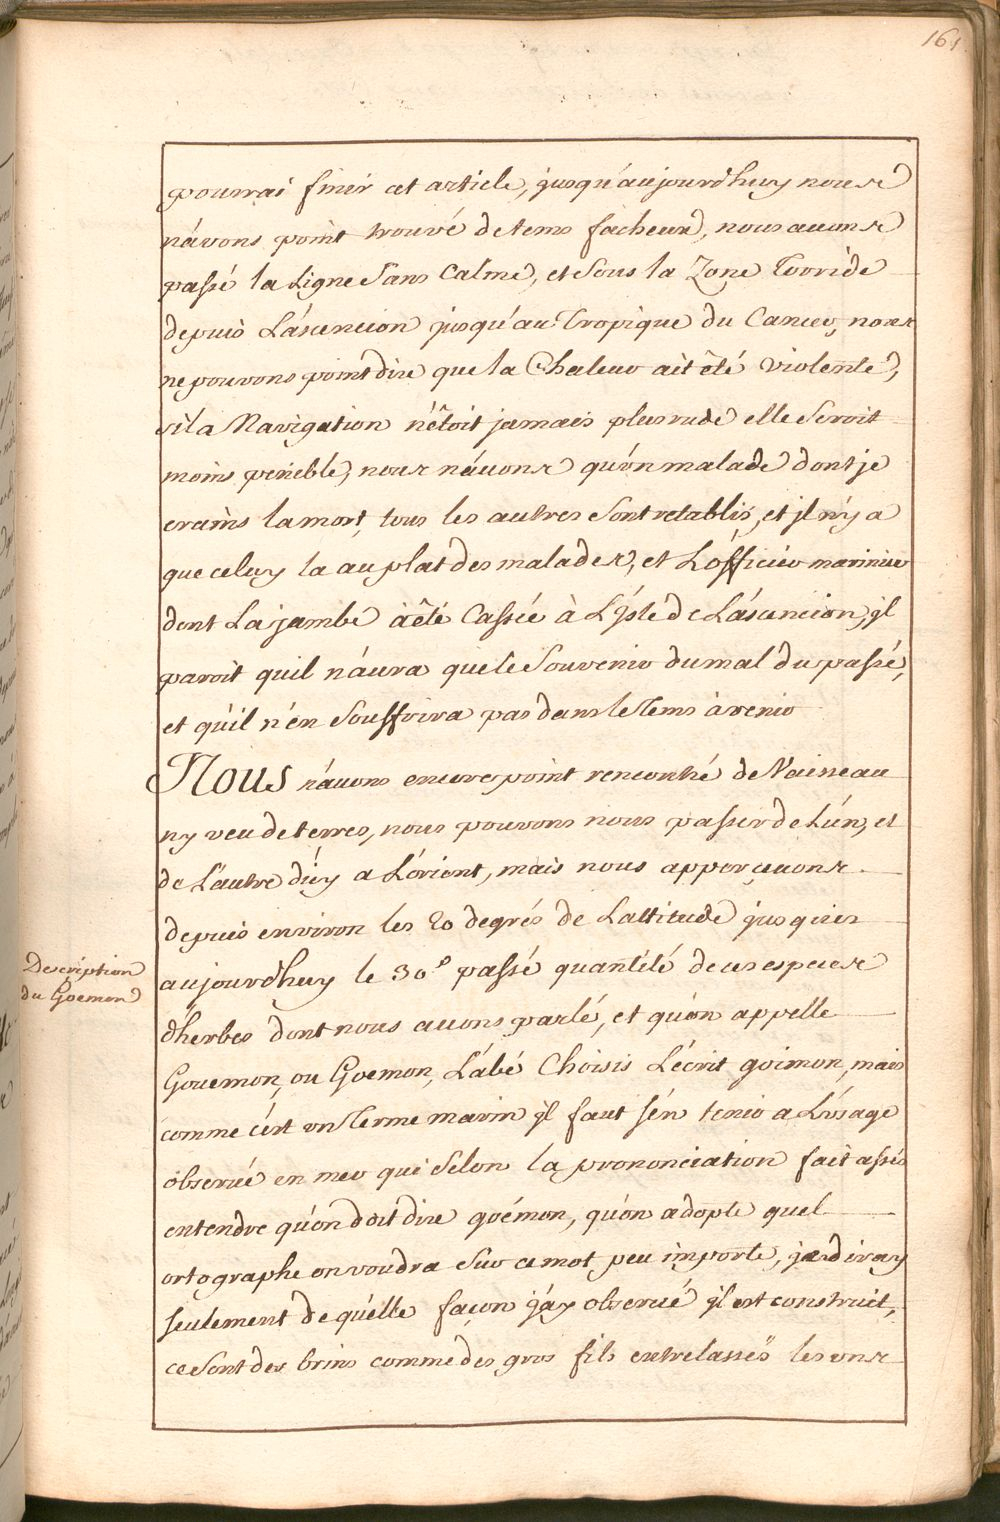 161
pourrai finir cet article, jusqu'aujourd'huy nous
n'avons point trouvé de tems facheux, nous avons
passé la Ligne Sans Calme, et Sous la Zone Torride
depuis L'ascencion jusqu'au Tropique du Cancer, nous
ne pouvons point dire que la Chaleur ait êté violente,
si la Navigation n'êtoit jamais plus rude elle Seroit
moins penible, nous n'avons qu'un malade dont je
crains la mort, tous les autres Sont retablis, et jl n'y a
que celuy la au plat des malades, et L'officier marinier
dont La jambe a êté Cassée à L'Jsle de L'ascencion, jl
paroit quil n'aura que le Souvenir du mal du passé,
et qu'il n'en Souffrira pas dans le Tems à venir
Nous n'avons encore point rencontré de Vaisseau
ny veu de terres, nous pouvons nous passer de L'un, et
de L'autre d'icy a L'orient, mais nous appercevons
depuis environ les 20 degrés de Lattitude jusques
aujourd'huy le 30.e passé quantité de ces especes
d'herbes dont nous avons parlé, et qu'on appelle
Gouemon, ou Goemon, L'abé Choisis L'écrit goimon, mais
comme c'est un Terme marin jl faut s'en tenir a L'usage
observé en mer qui Selon la prononciation fait assés
entendre qu'on doit dire goémon, qu'on adopte quel
ortographe on voudra Sur ce mot peu importe, je diray
seulement de quelle façon j'ay observé jl est construit,
ce Sont des brins comme des gros fils entrelassés les uns
Description
du Goemon